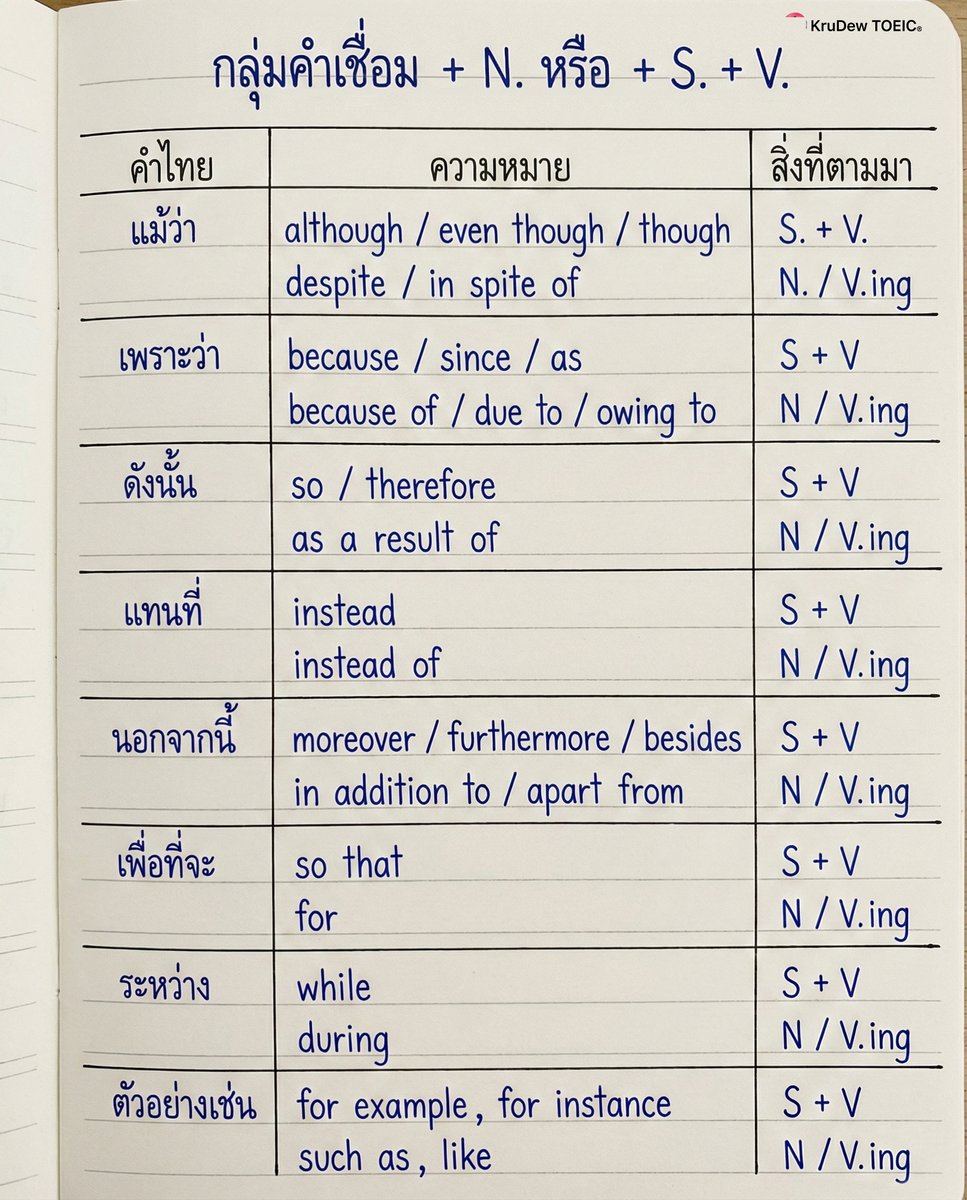 KruDew TOEIC®
กลุ่มคำเชื่อม + N. หรือ + S. + V.
คำไทย ความหมาย สิ่งที่ตามมา
แม้ว่า although / even though / though S. + V.
despite / in spite of N. / V.ing
เพราะว่า because / since / as S + V
because of / due to / owing to N / V.ing
ดังนั้น so / therefore S + V
as a result of N / V.ing
แทนที่ instead S + V
instead of N / V.ing
นอกจากนี้ moreover / furthermore / besides S + V
in addition to / apart from N / V.ing
เพื่อที่จะ so that S + V
for N / V.ing
ระหว่าง while S + V
during N / V.ing
ตัวอย่างเช่น for example, for instance S + V
such as, like N / V.ing